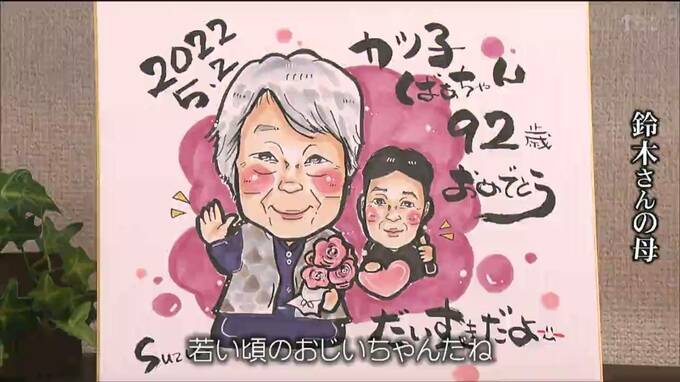 2022
5.2
カツ子
ばあちゃん
92歳
おめでとう
だいすきだよ
鈴木さんの母
若い頃のおじいちゃんだね